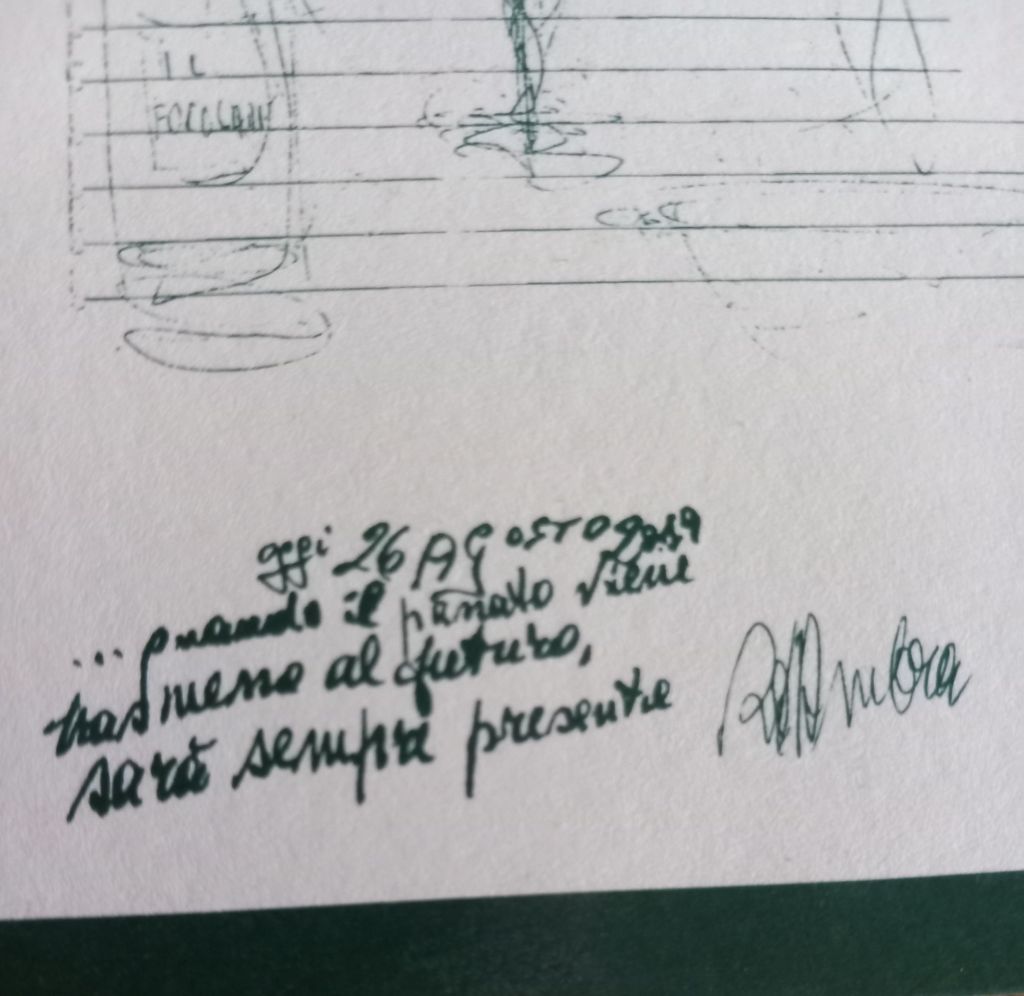 IL
oggi 26 AGOSTO
... quando il passato viene
trasmesso al futuro,
sarà sempre presente